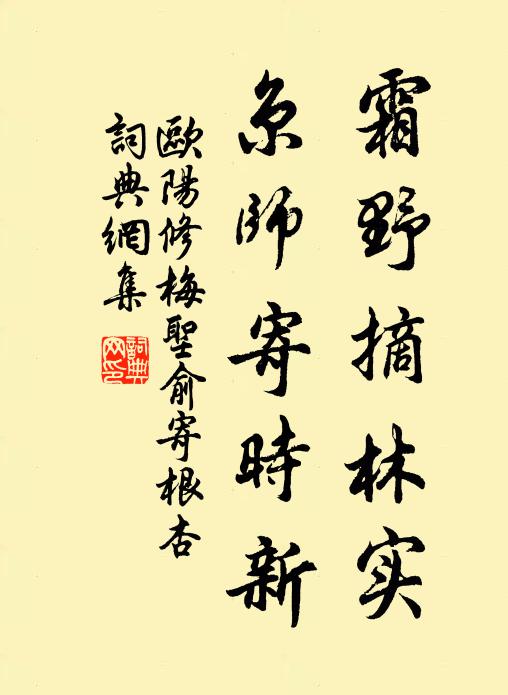 霜野摘林实
京师寄時新
歐陽修梅聖俞寄根杏
詞典網集
詞典网印